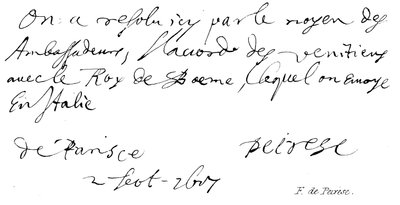 On a resolu icy par le moyen des
Ambassadeurs, l'acord des venitiens
avec le Roy de Boeme, lequel on envoye
En Italie
de Paris ce peiresc
2 sept. 1607
F. de Peiresc.